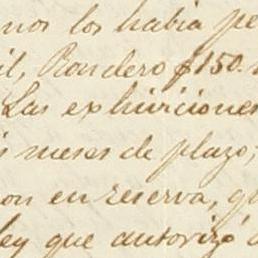 nos los habia pe
il, Rondero $150.
Las exhiviciones
s meses de plazo;
on en reserva, q
ley que autorizó